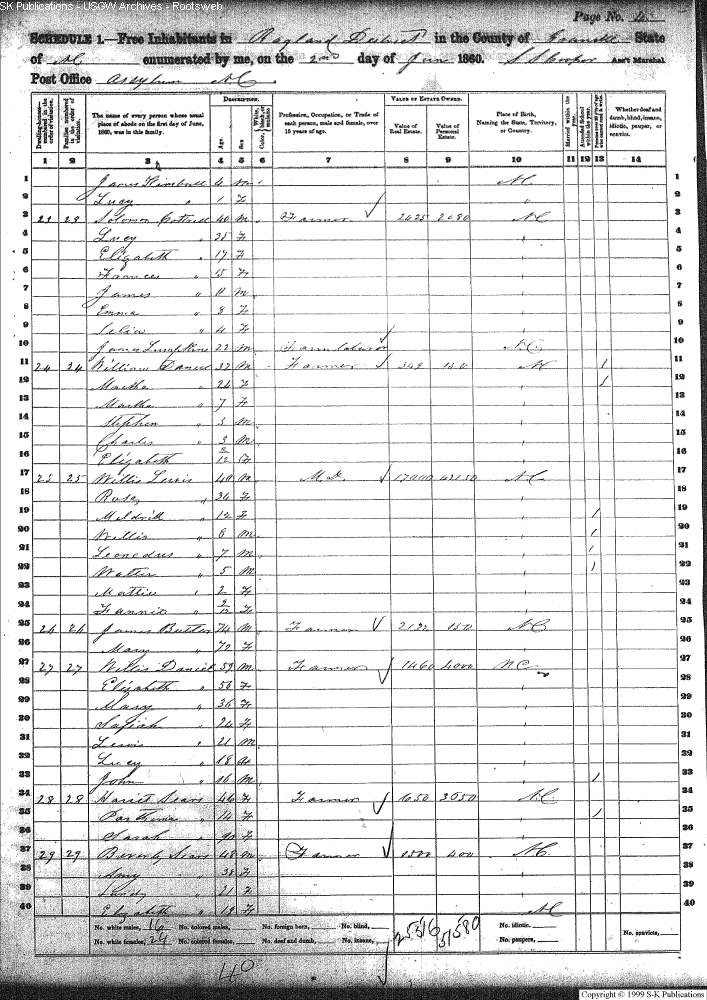 SK Publications - USGW Archives - Rootsweb
Page No. 4
SCHEDULE 1.—Free Inhabitants in Ragland District in the County of Granville State
of NC enumerated by me, on the 2nd day of June 1860. S S Cooper Ass't Marshal
Post Office Assylum NC
Dwelling-houses—numbered in the order of visitation.
Families numbered in the order of visitation.
The name of every person whose usual place of abode on the first day of June, 1860, was in this family.
DESCRIPTION.
Age.
Sex.
Color, White, black, or mulatto.
Profession, Occupation, or Trade of each person, male and female, over 15 years of age.
VALUE OF ESTATE OWNED.
Value of Real Estate.
Value of Personal Estate.
Place of Birth, Naming the State, Territory, or Country.
Married within the year.
Attended School within the year.
Whether deaf and dumb, blind, insane, idiotic, pauper, or convict.
1 2 3 4 5 6 7 8 9 10 11 12 13 14
1 James 4 m NC 1
2 Lucy " 1 F " 2
3 23 23 Solomon Cottrell 40 m Farmer 2425 2080 NC 3
4 Lucy " 35 F 4
5 Elizabeth " 17 F 5
6 Frances " 15 F 6
7 James " 11 m 7
8 Emma " 8 F 8
9 " 4 F 9
10 James Lumpkins 22 m Farm laborer NC 10
11 24 24 William Daniel 37 m Farmer NC 1 11
12 Martha " 24 F 1 12
13 Martha " 7 F 13
14 Stephen " 5 m 14
15 Charles " 3 m 15
16 Elizabeth 2/12 F 16
17 25 25 Willis Lewis 40 m M.D. 17000 43150 NC 17
18 Rose " 34 F 18
19 " 12 F 1 19
20 Willis " 8 m 1 20
21 Leonedus " 7 m 1 21
22 Walter " 5 m 1 22
23 Mattie " 2 F 23
24 Fannie " 2/12 F 24
25 26 26 James Butler 74 m Farmer 150 NC 25
26 Mary " 72 F 26
27 27 27 Willis Daniel 59 m Farmer 1460 4000 NC 27
28 Elizabeth " 56 F 28
29 Mary " 36 F 29
30 " 24 F 30
31 Lewis " 21 m 31
32 Lucy " 18 F 32
33 John " 16 m 1 33
34 28 28 Harriet Sears 46 F Farmer 650 3050 NC 34
35 Parthena " 14 F 1 35
36 Sarah " F 36
37 29 29 Beverly Sears 48 m Farmer 400 NC 37
38 Amy " 38 F 38
39 " 21 F 39
40 Elizabeth " 19 F NC 40
No. white males, 16 No. colored males, No. foreign born, No. blind, No. idiotic,
No. white females, 24 No. colored females, No. deaf and dumb, No. insane, No. paupers, No. convicts,
40
Copyright © 1999 S-K Publications